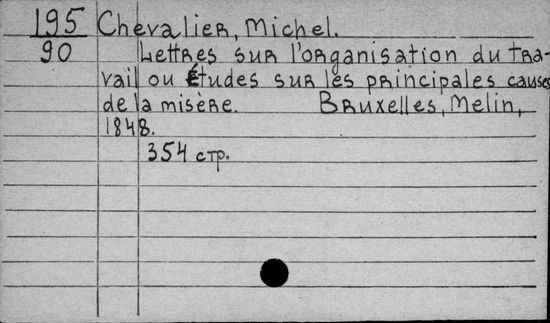 195 Chevalier, Michel.
90 Lettres sur l'organisation du tra-
vail ou Études sur les principales causes
de la misère. Bruxelles, Melin,
1848.
354 стр.